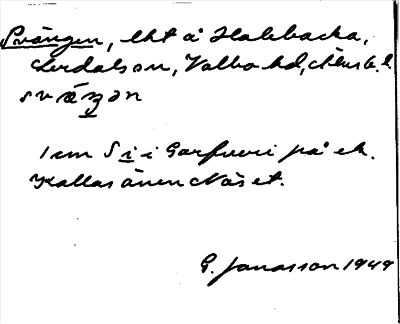 Svängen, lht å Halebacka,
Lerdals sn, Valbo hd, Älvsb. l.
svæŋən
1 km S i
på ek.
Kallas även Näset.
G. Jonasson 1949